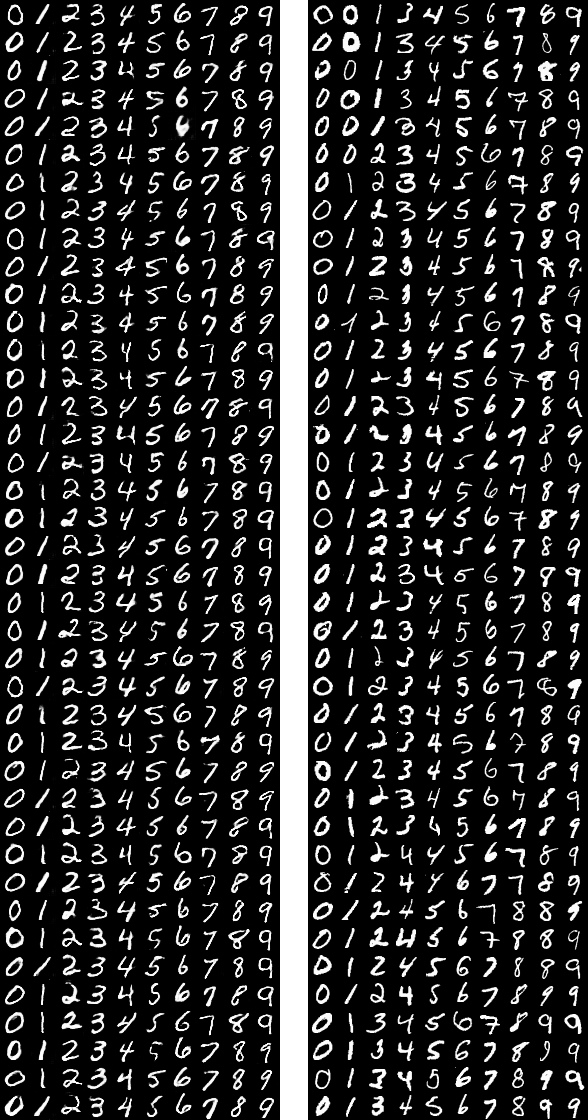 0 1 2 3 4 5 6 7 8 9 0 0 1 3 4 5 6 7 8 9
0 1 2 3 4 5 6 7 8 9 0 0 1 3 4 5 6 7 8 9
0 1 2 3 4 5 6 7 8 9 0 0 1 3 4 5 6 7 8 9
0 1 2 3 4 5 6 7 8 9 0 0 1 3 4 5 6 7 8 9
0 1 2 3 4 5 6 7 8 9 0 0 1 3 4 5 6 7 8 9
0 1 2 3 4 5 6 7 8 9 0 0 2 3 4 5 6 7 8 9
0 1 2 3 4 5 6 7 8 9 0 1 2 3 4 5 6 7 8 9
0 1 2 3 4 5 6 7 8 9 0 1 2 3 4 5 6 7 8 9
0 1 2 3 4 5 6 7 8 9 0 1 2 3 4 5 6 7 8 9
0 1 2 3 4 5 6 7 8 9 0 1 2 3 4 5 6 7 8 9
0 1 2 3 4 5 6 7 8 9 0 1 2 3 4 5 6 7 8 9
0 1 2 3 4 5 6 7 8 9 0 1 2 3 4 5 6 7 8 9
0 1 2 3 4 5 6 7 8 9 0 1 2 3 4 5 6 7 8 9
0 1 2 3 4 5 6 7 8 9 0 1 2 3 4 5 6 7 8 9
0 1 2 3 4 5 6 7 8 9 0 1 2 3 4 5 6 7 8 9
0 1 2 3 4 5 6 7 8 9 0 1 2 3 4 5 6 7 8 9
0 1 2 3 4 5 6 7 8 9 0 1 2 3 4 5 6 7 8 9
0 1 2 3 4 5 6 7 8 9 0 1 2 3 4 5 6 7 8 9
0 1 2 3 4 5 6 7 8 9 0 1 2 3 4 5 6 7 8 9
0 1 2 3 4 5 6 7 8 9 0 1 2 3 4 5 6 7 8 9
0 1 2 3 4 5 6 7 8 9 0 1 2 3 4 5 6 7 8 9
0 1 2 3 4 5 6 7 8 9 0 1 2 3 4 5 6 7 8 9
0 1 2 3 4 5 6 7 8 9 0 1 2 3 4 5 6 7 8 9
0 1 2 3 4 5 6 7 8 9 0 1 2 3 4 5 6 7 8 9
0 1 2 3 4 5 6 7 8 9 0 1 2 3 4 5 6 7 8 9
0 1 2 3 4 5 6 7 8 9 0 1 2 3 4 5 6 7 8 9
0 1 2 3 4 5 6 7 8 9 0 1 2 3 4 5 6 7 8 9
0 1 2 3 4 5 6 7 8 9 0 1 2 3 4 5 6 7 8 9
0 1 2 3 4 5 6 7 8 9 0 1 2 3 4 5 6 7 8 9
0 1 2 3 4 5 6 7 8 9 0 1 2 3 4 5 6 7 8 9
0 1 2 3 4 5 6 7 8 9 0 1 2 4 4 5 6 7 8 9
0 1 2 3 4 5 6 7 8 9 0 1 2 4 4 6 7 7 8 9
0 1 2 3 4 5 6 7 8 9 0 1 2 4 5 6 7 8 8 9
0 1 2 3 4 5 6 7 8 9 0 1 2 4 5 6 7 8 8 9
0 1 2 3 4 5 6 7 8 9 0 1 2 4 5 6 7 8 8 9
0 1 2 3 4 5 6 7 8 9 0 1 2 4 5 6 7 8 9 9
0 1 2 3 4 5 6 7 8 9 0 1 3 4 5 6 7 8 9 9
0 1 2 3 4 5 6 7 8 9 0 1 3 4 5 6 7 8 9 9
0 1 2 3 4 5 6 7 8 9 0 1 3 4 5 6 7 8 9 9
0 1 2 3 4 5 6 7 8 9 0 1 3 4 5 6 7 8 9 9